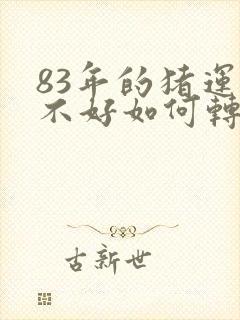 83年的猪運
不好如何轉
古新世